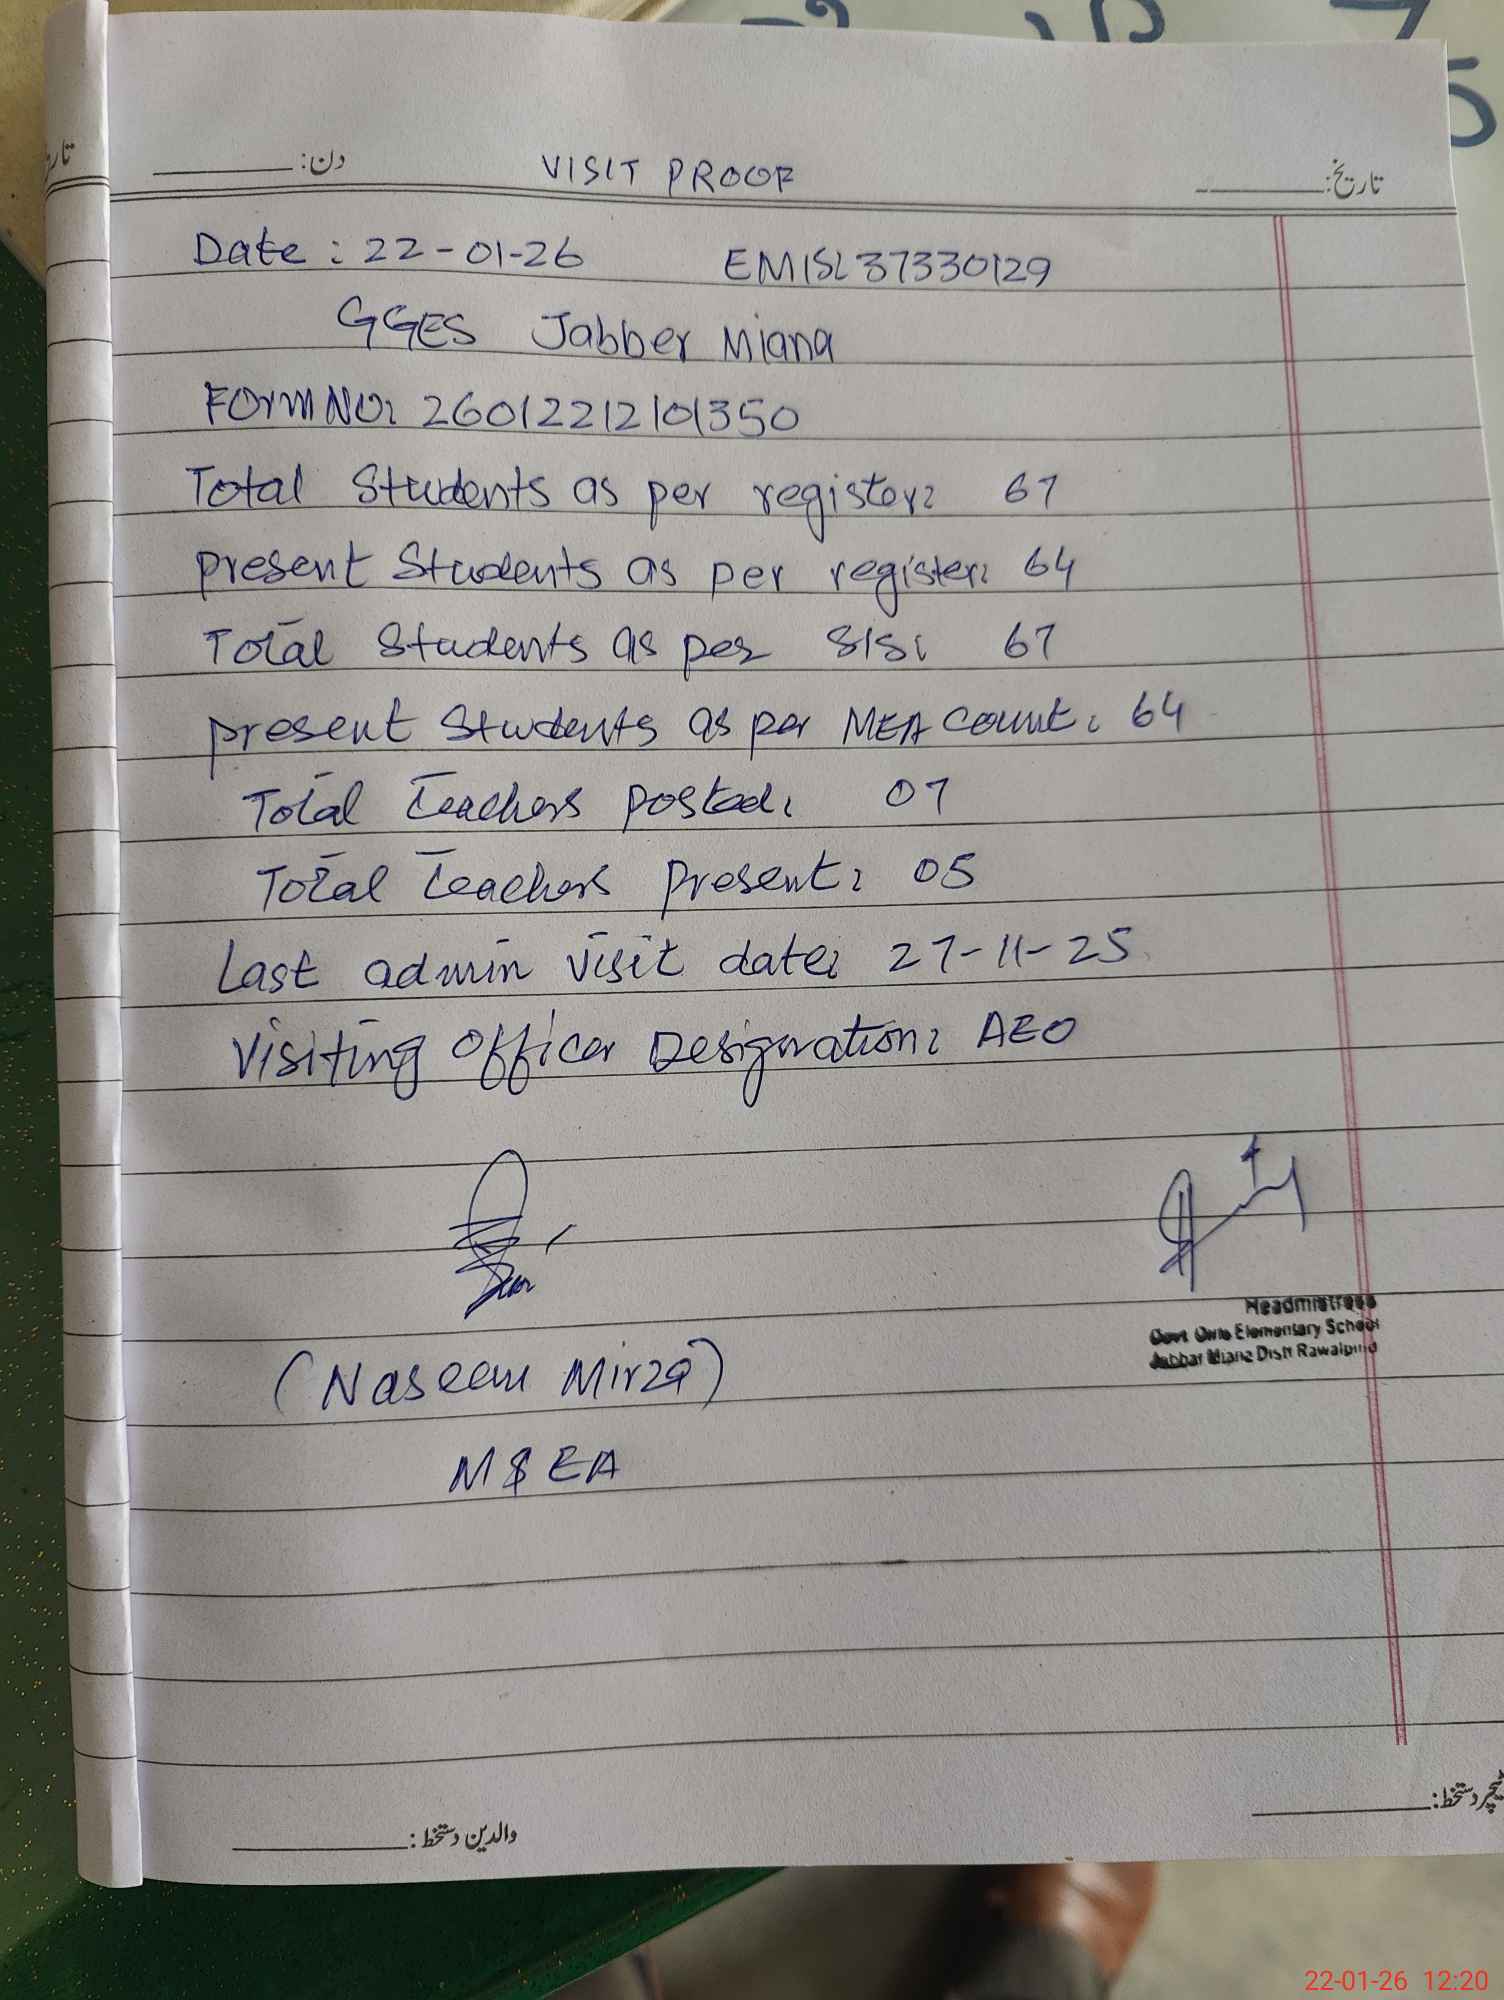 دن: VISIT PROOF تاریخ:
Date : 22-01-26 EMIS: 37330129
GGES Jabber Miana
Form NO: 26012212101350
Total Students as per register: 67
present Students as per register: 64
Total Students as per SIS: 67
present Students as per MEA count: 64
Total teachers posted: 07
Total teachers present: 05
Last admin visit date: 27-11-25
Visiting Officer Designation: AEO
Headmistress
Govt Girls Elementary School
Jabbar Miana Distt Rawalpindi
(Naseem Mirza)
M&EA
ٹیچر دستخط:
والدین دستخط:
22-01-26 12:20